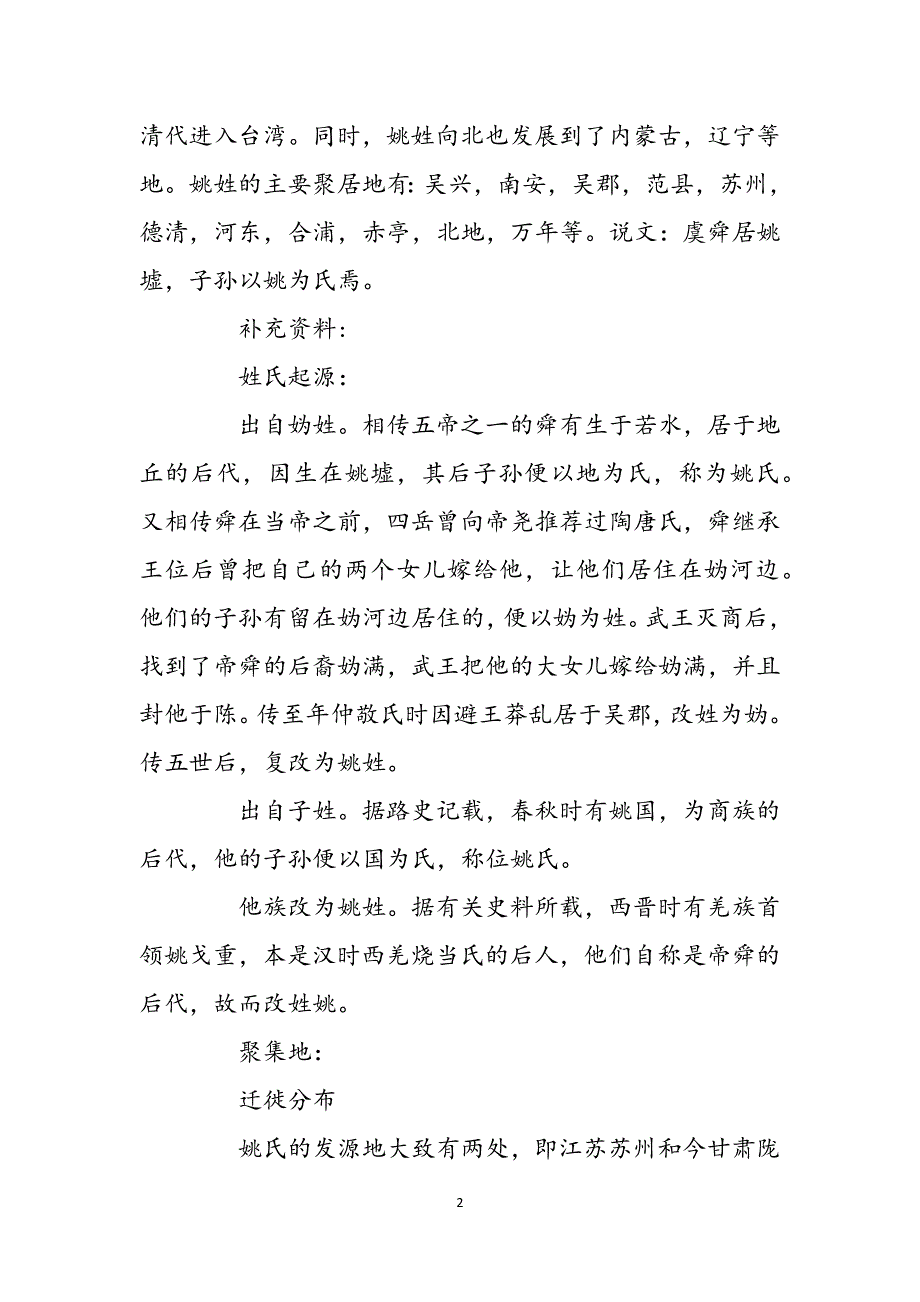 清代进入台湾。同时，姚姓向北也发展到了内蒙古，辽宁等
地。姚姓的主要聚居地有：吴兴，南安，吴郡，范县，苏州，
德清，河东，合浦，赤亭，北地，万年等。说文：虞舜居姚
墟，子孙以姚为氏焉。
补充资料：
姓氏起源：
出自妫姓。相传五帝之一的舜有生于若水，居于地
丘的后代，因生在姚墟，其后子孙便以地为氏，称为姚氏。
又相传舜在当帝之前，四岳曾向帝尧推荐过陶唐氏，舜继承
王位后曾把自己的两个女儿嫁给他，让他们居住在妫河边。
他们的子孙有留在妫河边居住的，便以妫为姓。武王灭商后，
找到了帝舜的后裔妫满，武王把他的大女儿嫁给妫满，并且
封他于陈。传至年仲敬氏时因避王莽乱居于吴郡，改姓为妫。
传五世后，复改为姚姓。
出自子姓。据路史记载，春秋时有姚国，为商族的
后代，他的子孙便以国为氏，称位姚氏。
他族改为姚姓。据有关史料所载，西晋时有羌族首
领姚戈重，本是汉时西羌烧当氏的后人，他们自称是帝舜的
后代，故而改姓姚。
聚集地：
迁徙分布
姚氏的发源地大致有两处，即江苏苏州和今甘肃陇
2